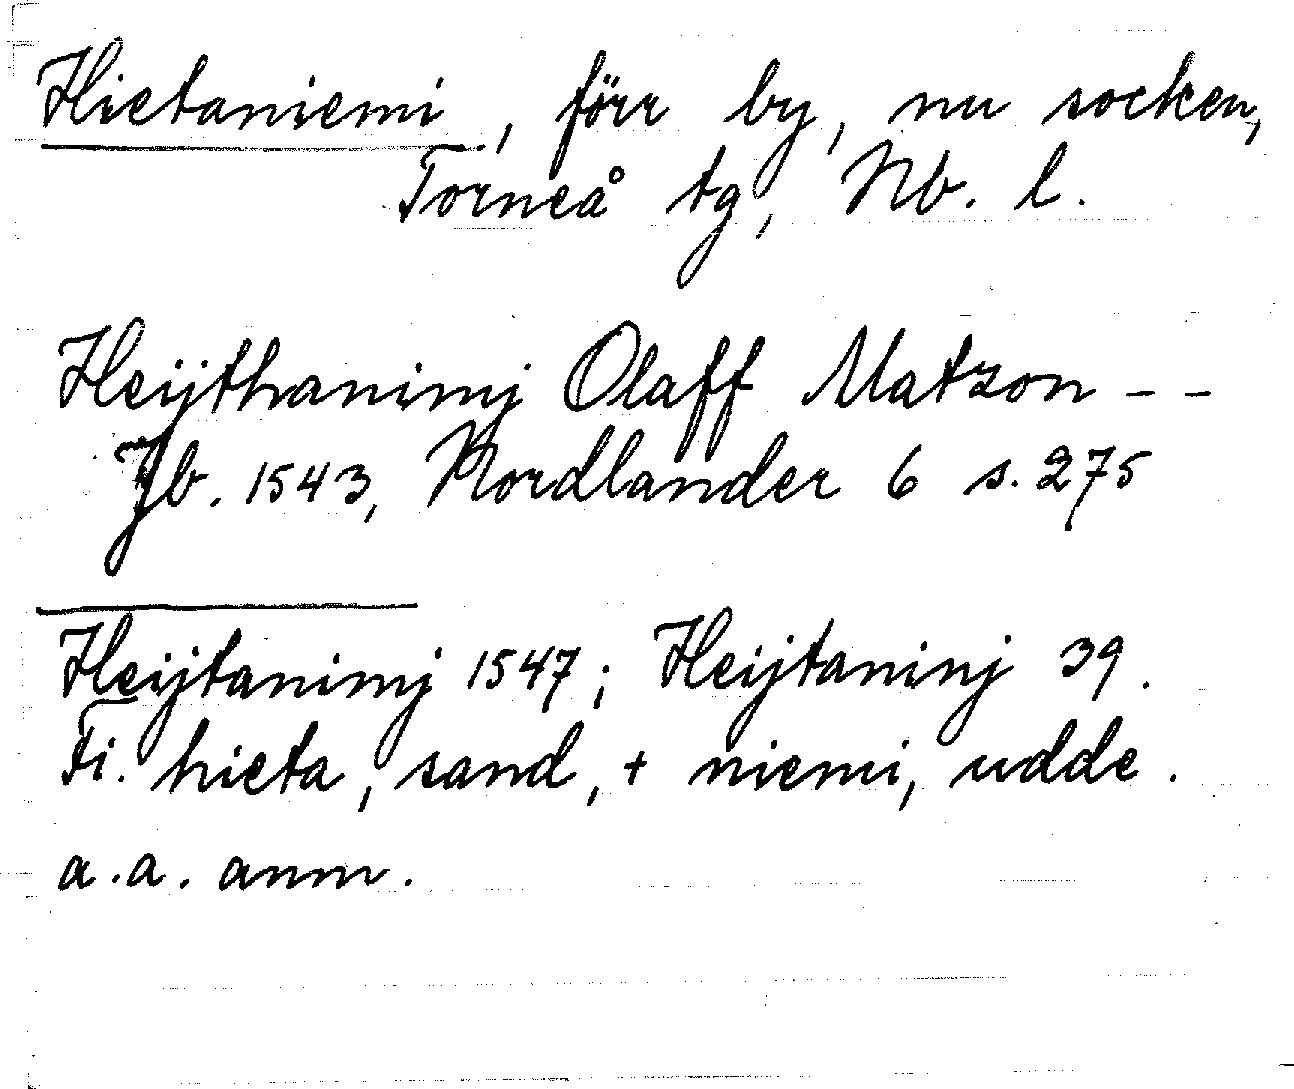 Hietaniemi, förr by, nu socken,
Torneå tg, Nb. l.
Heijthanimj Olaff Matzon - -
Jb. 1543, Nordlander 6 s. 275
Heijtanimj 1547; Heijtaninj 39.
Fi. hieta, sand, + niemi, udde.
a.a. anm.